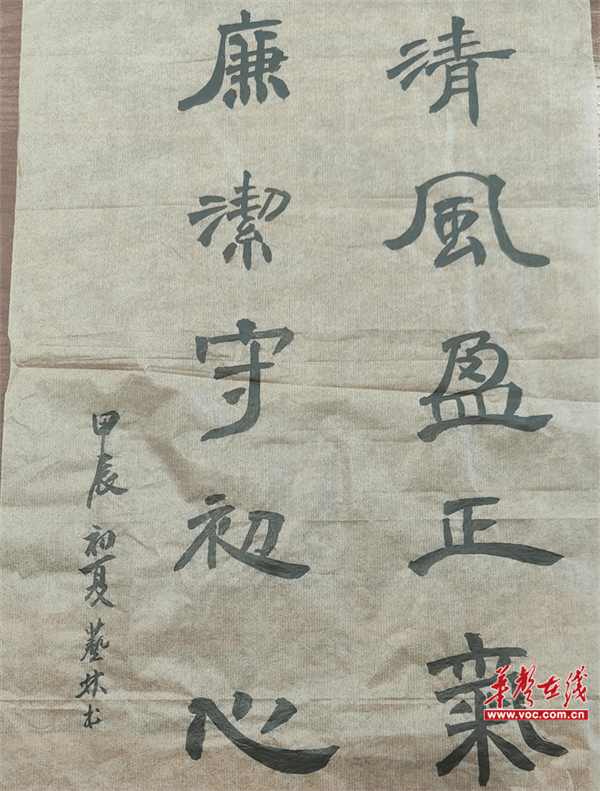 清風盈正氣
廉潔守初心
甲辰初夏藝林书
華聲在线
www.voc.com.cn